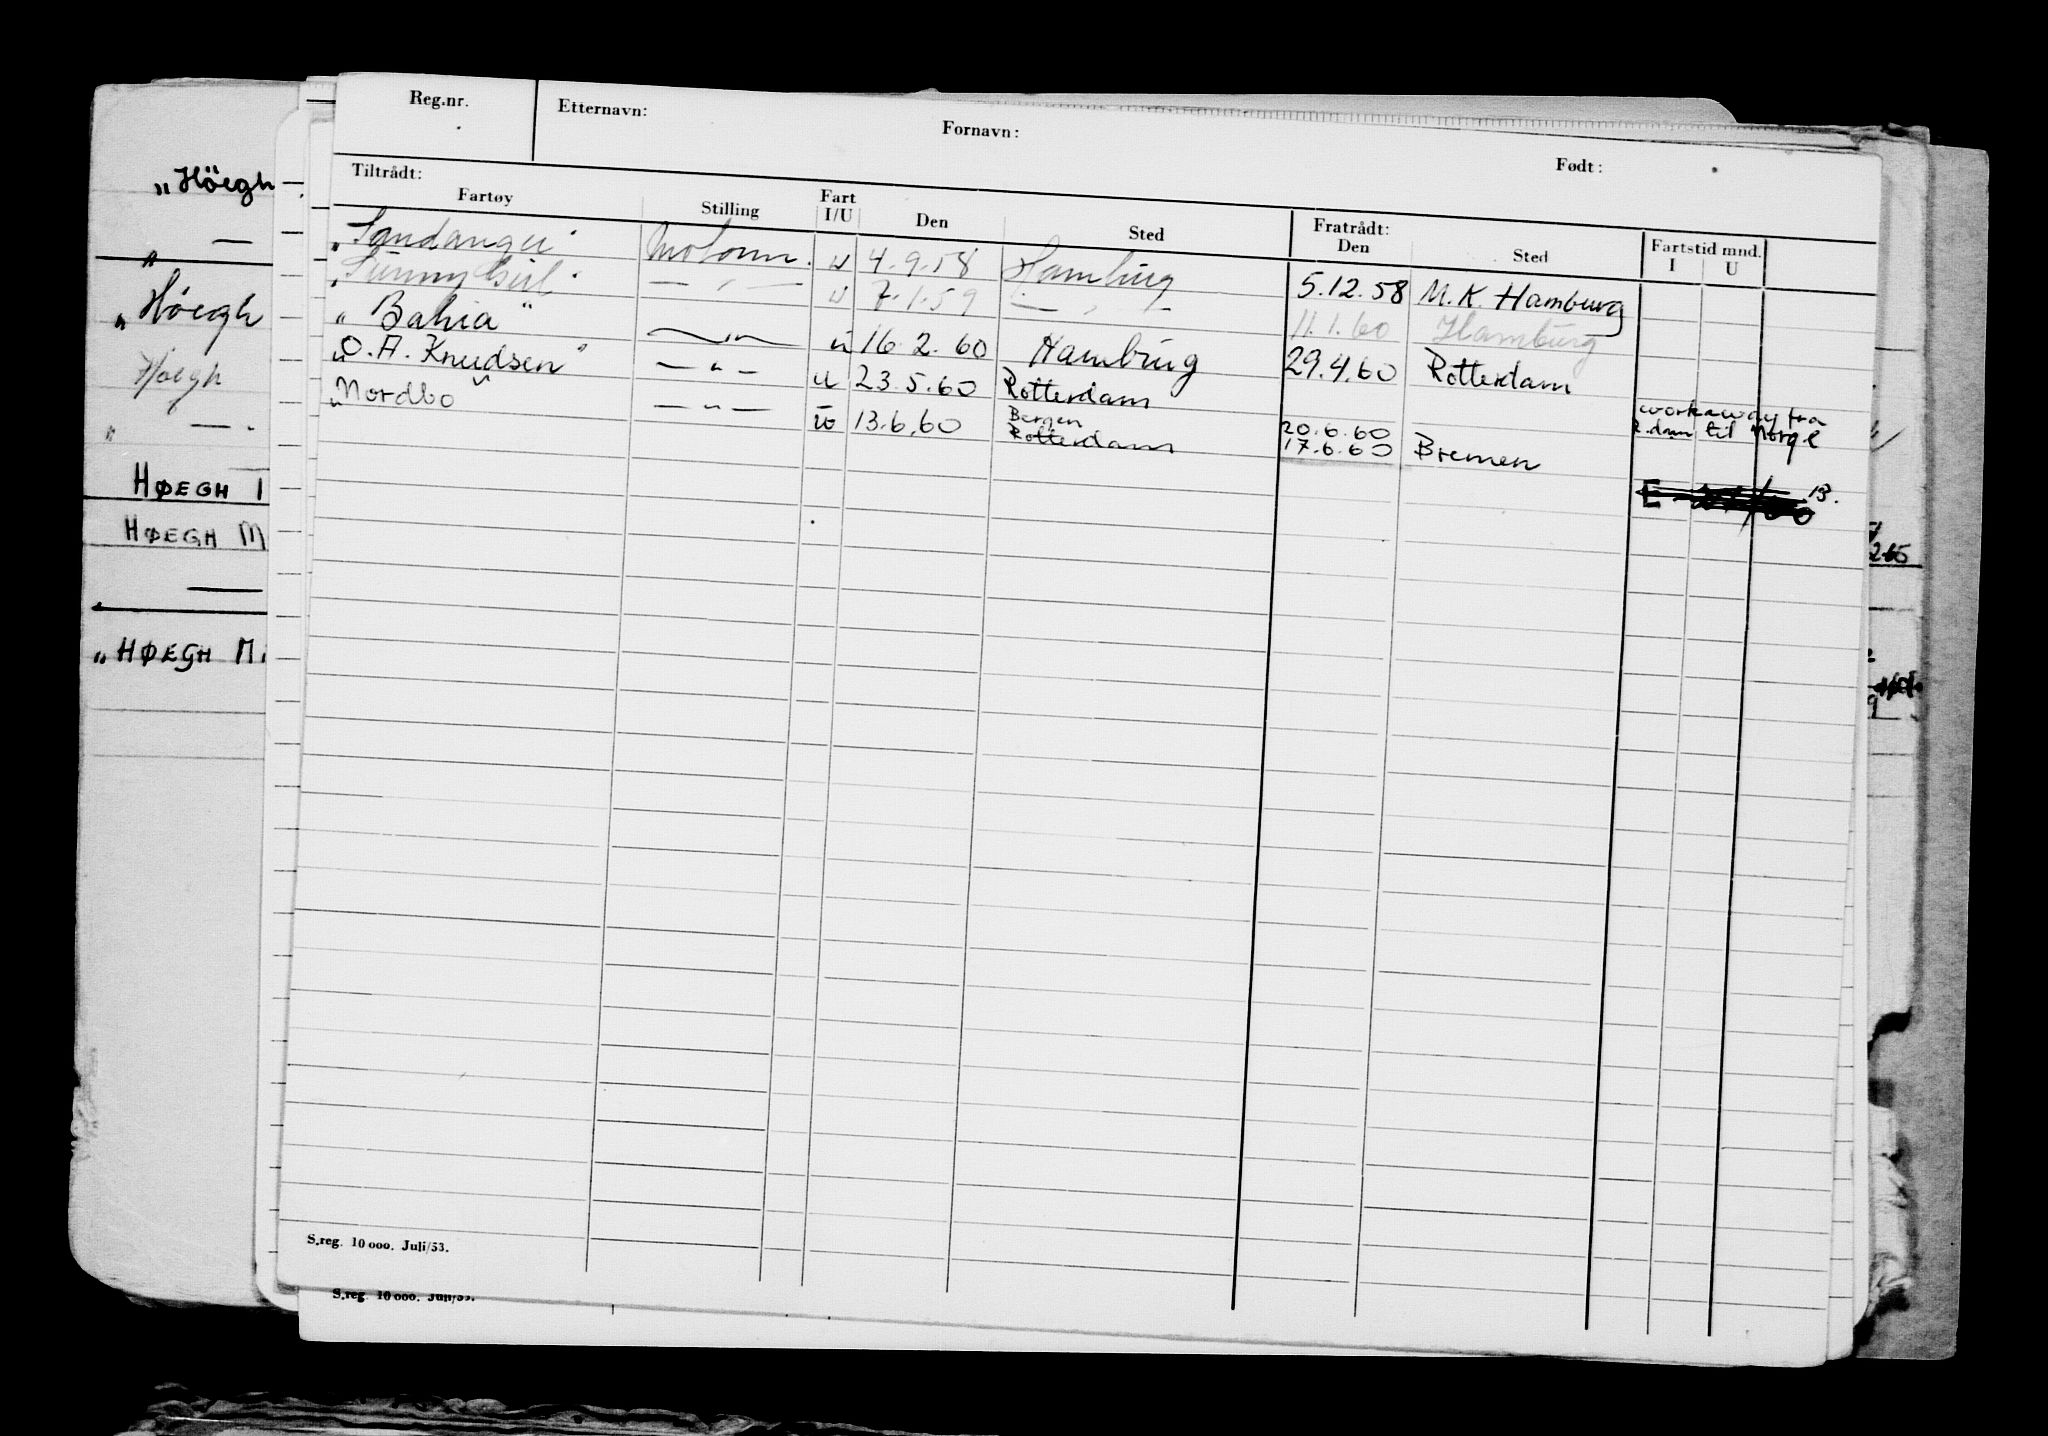 Reg.nr. Etternavn: Fornavn: Født:
Tiltrådt: Fratrådt: Fartstid mnd.
Fartøy Stilling Fart I/U Den Sted Den Sted I U
„Sandanger" Motorm. u 4.9.58 Hamburg 5.12.58 M.K. Hamburg
„Sunny Girl" — „ — u 7.1.59 — „ — 11.1.60 Hamburg
„Bahia" — „ — u 16.2.60 Hamburg 29.4.60 Rotterdam
„O.A. Knudsen" — „ — u 23.5.60 Rotterdam
workaway fra
R.dam til Norge
Bergen 20.6.60
„Nordbo" — „ — u 13.6.60 Rotterdam 17.6.60 Bremen
E
S.reg. 10 000. Juli/53.
S.reg. 10 000. Juli/53.
„Höegh
„ —
„Höegh
Höegh
„ —
HØEGH
HØEGH M
—
„HØEGH M